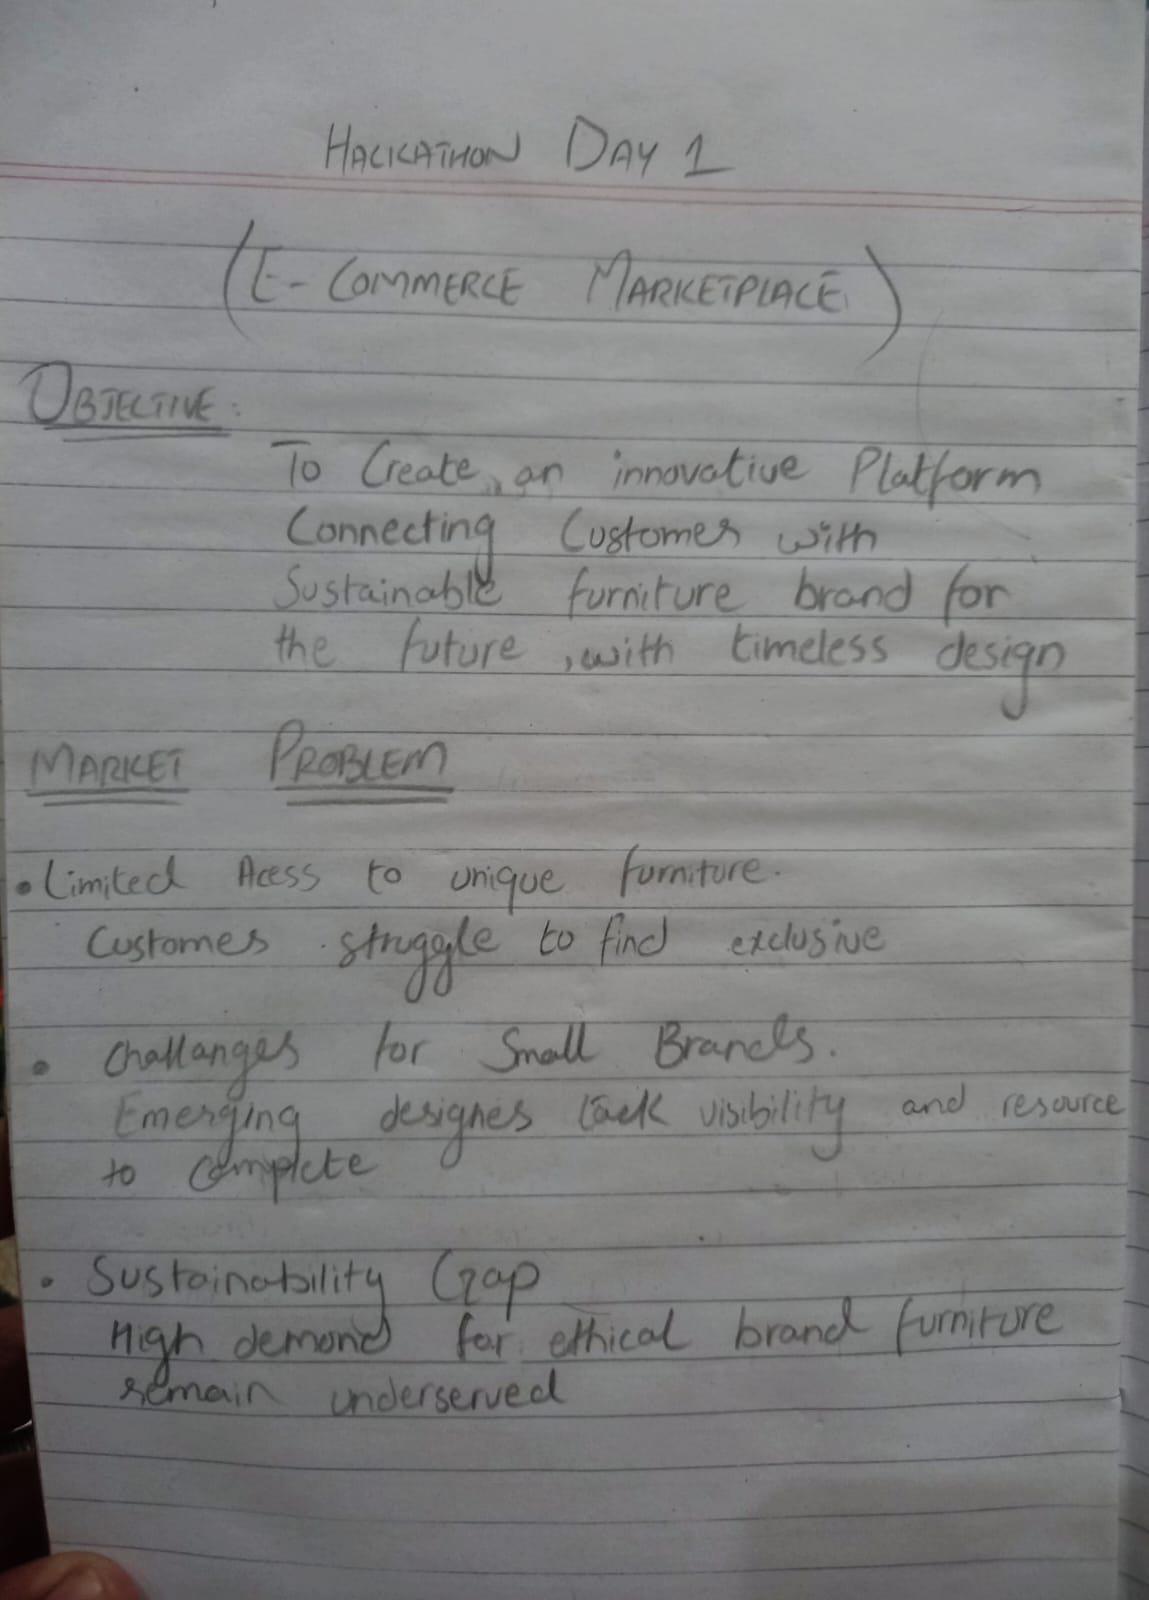 HACKATHON DAY 1
(E-COMMERCE MARKETPLACE)
OBJECTIVE:
To Create, an innovative Platform
Connecting Customer with
Sustainable furniture brand for
the future, with timeless design
MARKET PROBLEM
• Limited Acess to unique furniture.
Customes struggle to find exclusive
• Challanges for Small Brands.
Emerging designes lack visibility and resource
to complete
• Sustainability Gap
High demand for ethical brand furniture
remain underserved